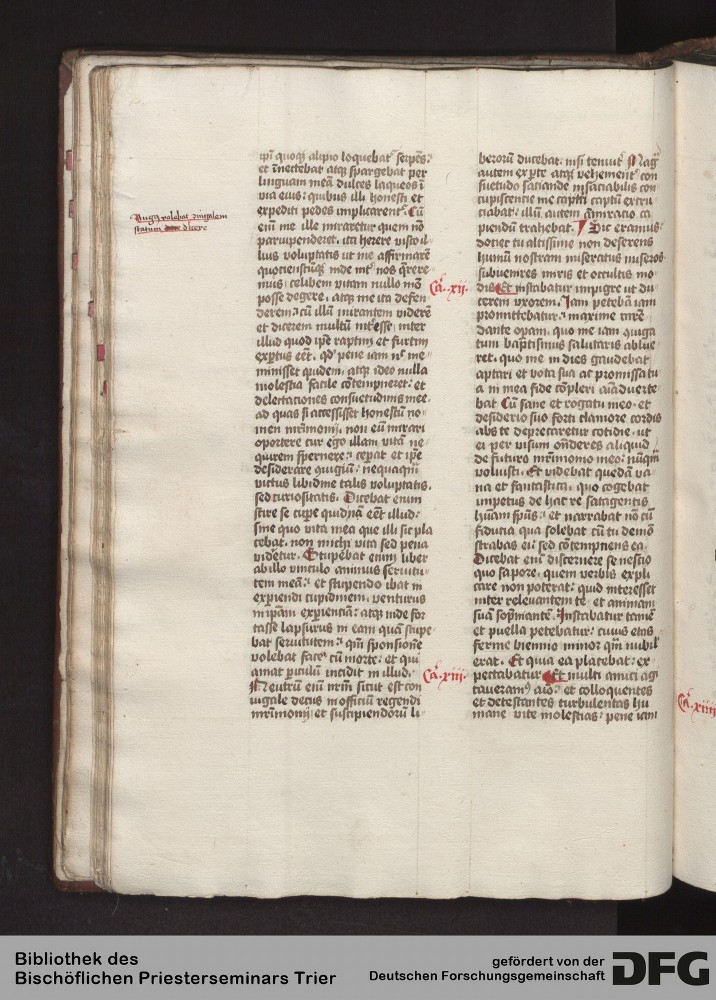 ipi quoqꝫ alipio loquebat᷑ serpēs·
et innectebat atqꝫ spargebat per
linguam meā dulces laqueos ī
via eius· quibus illi honesti et
expediti pedes implicarent᷑ Cū
eim̄ me ille miraretur quem nō
paruipenderet· ita herere visco il
lius voluptatis ut me affirmarē
quociensc̄ūqꝫ inde int᷑ nos q̄rere
mus· celibem vitam nullo mō
posse degere· atqꝫ me ita defen
derem· cū illū mirantem viderē
et dicerem multū int᷑esse inter
illud quod ip̄e raptim et furtim
exp̄tus eēt· qd̓ pene iam nc̄ me
minisset quidem· atqꝫ ideo nulla
molestia facile cōtempneret· et
delectationes consuetudinis mee·
ad quas si accessisset honestū no
men mr̄imonij· non eū mirari
oportere cur ego illam vitā ne
quirem spernere· ceperat et ip̄e
desiderare
victus libidine talis voluptatis·
sed curiositatis· Dicebat enim
scire se cupe quidnā eēt illud·
sine quo vita mea que illi sic pla
cebat· non michi vita sed pena
videret᷑ Stupebat enim liber
ab illo vinculo animus seruitu
tem meā· et stupendo ibat in
experiendi cupidinem· venturus
in ip̄am exp̄ientiā· atqꝫ inde for
tasse lapsurus in eam quā stupe
bat seruitutem· qm̄ sponsionē
volebat face᷑ cū morte· et qui
amat p̄iculū incidit in illud·
Neutrū eim̄ nr̄m sicut est con
iugale decus in officiū regendi
mr̄imonij et suscipiendorū li
Ca. xij.
Ca. xiij.
berorū ducebat· nisi tenuit᷑ Mag̅
autem ex p̄te atqꝫ vehement᷑ con
suetudo saciande insaciabilis con
cupiscentie me captū excru
ciabat· illū autem admiracio ca
piendū trahebat· Sic eramus
donec tu altissime non deserens
humū nostram miseratus miseros
subuenires miris et occultis mo
dis Et instabatur impigre ut du
cerem vxorem· Iam petebā iam
promittebatur· maxime mr̄e
dante opam· quo me iam iuga
tum baptismus salutaris ablue
ret· quo me in dies gaudebat
aptari et vota sua ac promissa tu
a in mea fide cōpleri aīaduerte
bat Cū sane et rogatu meo· et
desiderio suo forti clamore cordis
abs te deprecaretur cotidie· ut
ei per visum onderes aliquid
de futuro mr̄imonio meo· nūqm̄
voluisti· Et videbat quedā va
na et fantastica· quo cogebat
impetus de hac re satagentis
huānī sp̄us· et narrabat nō cū
fiducia qua solebat cū tu demō
strabas ei· sed cōtempnens ea·
Dicebat eim̄ discernere se nescio
quo sapore· quem verbis expli
care non poterat· quid interesset
inter reuelantem te et animam
suā sompniantē· Instabatur tamē
et puella petebatur· cuius etas
ferme biennio minor qm̄ nubil
erat· Et quia ea placebat· ex
pectabatur Et multi amici agi
taueram᷑ aīo· et colloquentes
et detestantes turbulentas hu
mane vite molestias· pene iam
Ca. xiiij
Bibliothek des
Bischöflichen Priesterseminars Trier
gefördert von der
Deutschen Forschungsgemeinschaft
DFG